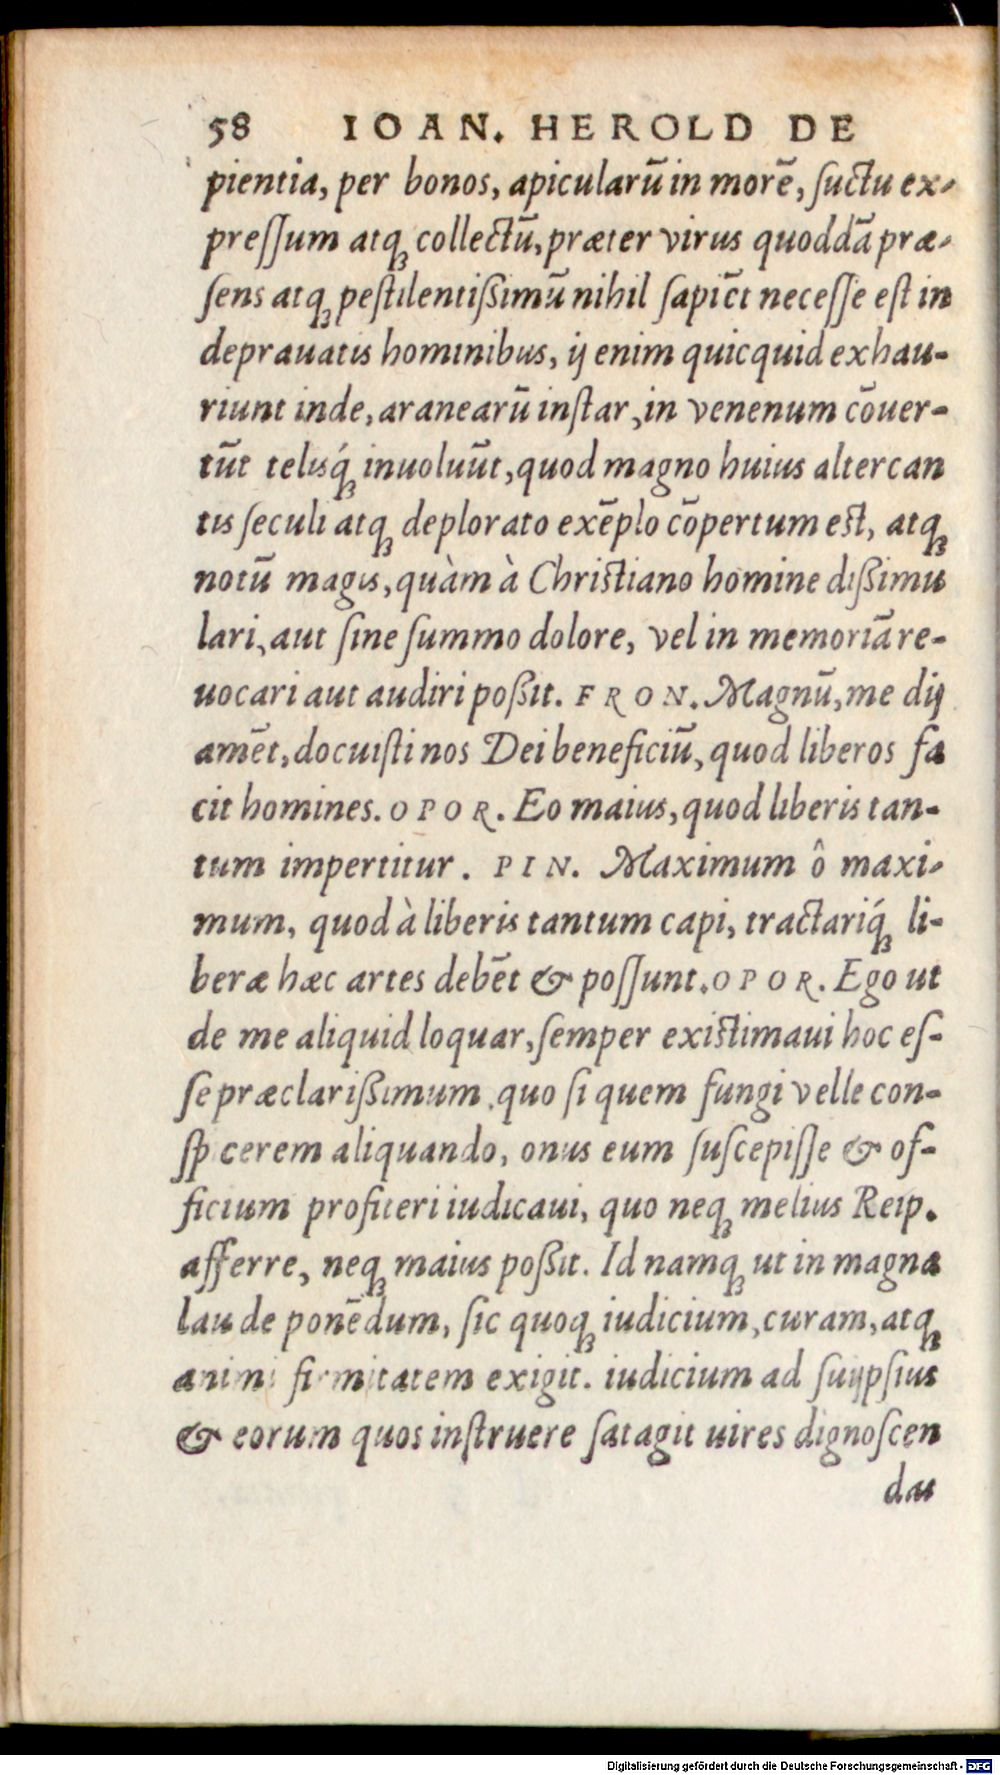 58 IOAN. HEROLD DE
pientia, per bonos, apicularū in morē, ſuctu ex-
preſſum atq; collectū, præter virus quoddā præ-
ſens atq; peſtilentißimū nihil ſapiēt neceſſe eſt in
deprauatis hominibus, ij enim quicquid exhau-
riunt inde, aranearū inſtar, in venenum cōuer-
tūt telisq́; inuoluūt, quod magno huius altercan
tis ſeculi atq; deplorato exēplo cōpertum eſt, atq;
notū magis, quàm à Chriſtiano homine dißimu
lari, aut ſine ſummo dolore, vel in memoriā re-
uocari aut audiri poßit. FRON. Magnū, me dij
amēt, docuiſti nos Dei beneficiū, quod liberos fa
cit homines. OPOR. Eo maius, quod liberis tan-
tum impertitur. PIN. Maximum ô maxi-
mum, quod à liberis tantum capi, tractariq́; li-
beræ hæc artes debēt & poſſunt. OPOR. Ego ut
de me aliquid loquar, ſemper exiſtimaui hoc eſ-
ſe præclarißimum, quo ſi quem fungi velle con-
ſpicerem aliquando, onus eum ſuſcepiſſe & of-
ficium profiteri iudicaui, quo neq; melius Reip.
afferre, neq; maius poßit. Id namq; ut in magna
laude ponēdum, ſic quoq; iudicium, curam, atq;
animi firmitatem exigit. iudicium ad ſuijpſius
& eorum quos inſtruere ſatagit uires dignoſcen
das
Digitalisierung gefördert durch die Deutsche Forschungsgemeinschaft - DFG